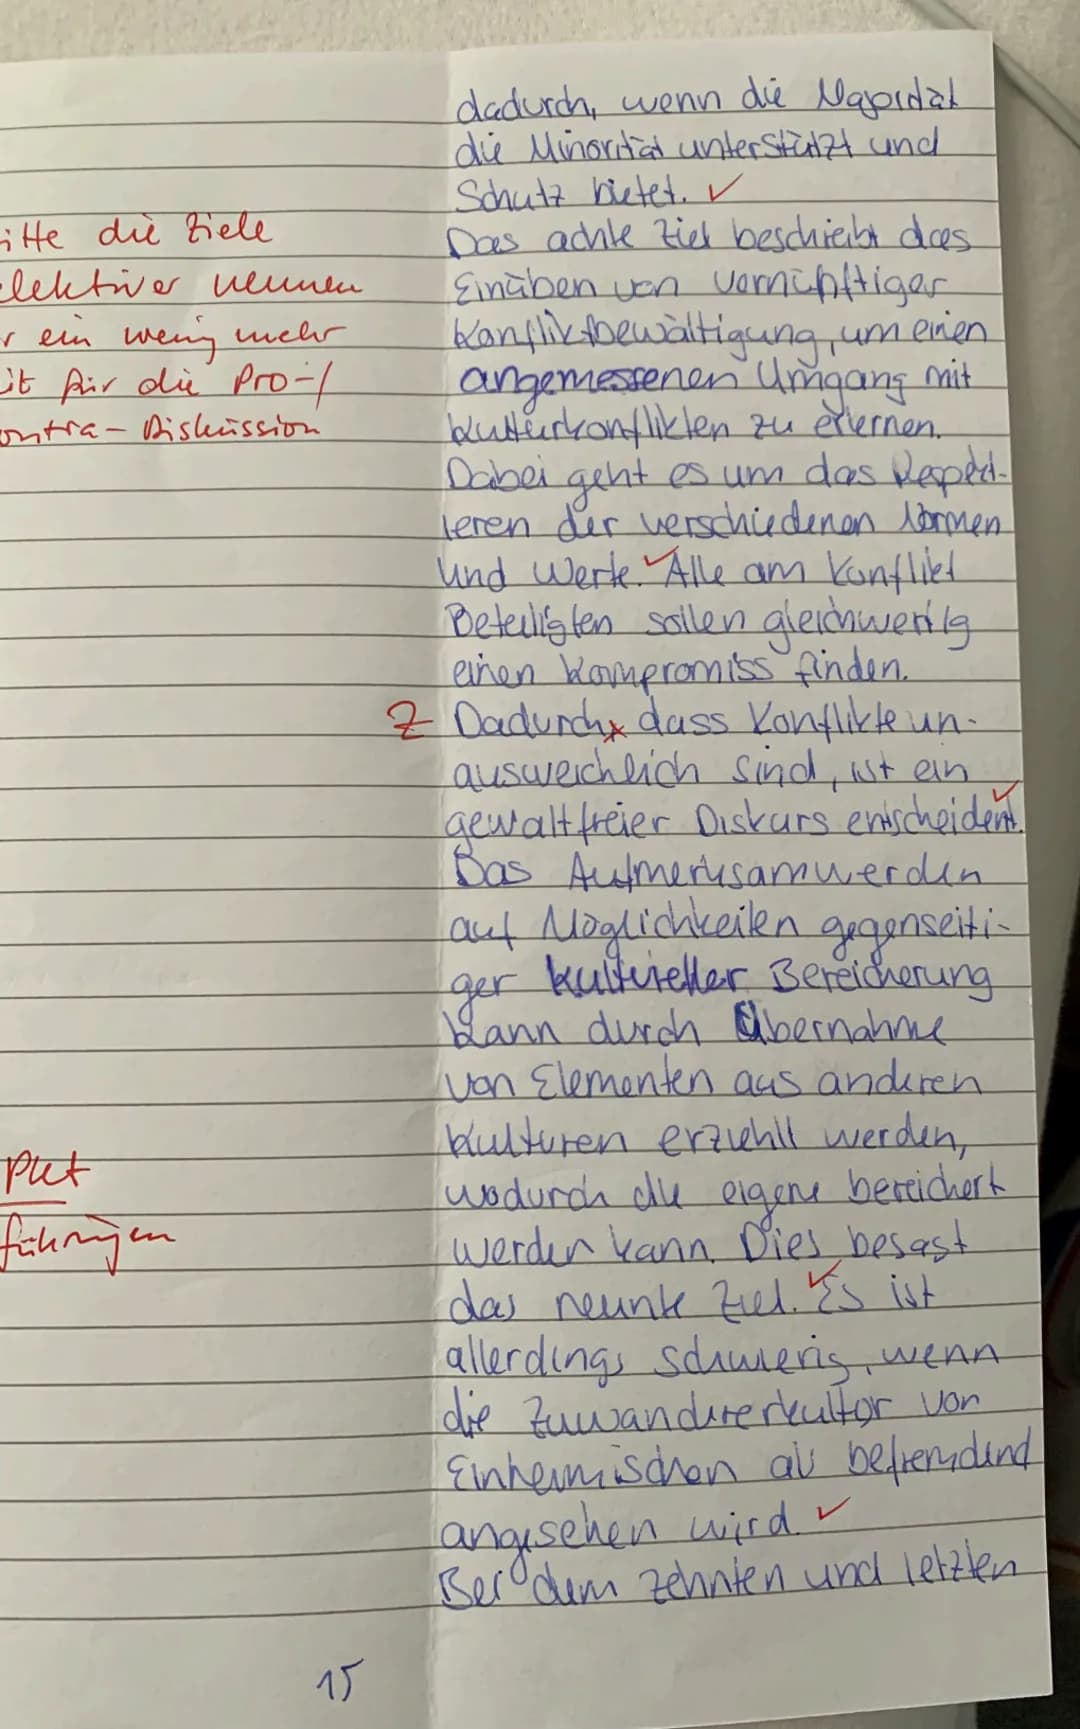 dadurch, wenn die Majorität
die Minorität unterstützt und
Schutz bietet. ✓
Das achte Ziel beschreibt das
Einüben von vernünftiger
Konfliktbewältigung, um einen
angemessenen Umgang mit
Kulturkonflikten zu erlernen.
Dabei geht es um das Respek-
tieren der verschiedenen Normen
und Werte. ✓ Alle am Konflikt
Beteiligten sollen gleichwertig
einen Kompromiss finden.
Z Dadurch, dass Konflikte un-
ausweichlich sind, ist ein
gewaltfreier Diskurs entscheident. ✓
Das Aufmerksamwerden
auf Möglichkeiten gegenseiti-
ger kultureller Bereicherung
kann durch Übernahme
von Elementen aus anderen
Kulturen erziehlt werden,
wodurch die eigene bereichert
werden kann. Dies besagt
das neunte Ziel. ✓ Es ist
allerdings schwierig, wenn
die Zuwandererkultur von
Einheimischen als befremdend
angesehen wird. ✓
Bei dem zehnten und letzten
itte die Ziele
elektiver nennen
r ein wenig mehr
it für die Pro-/
ontra-Diskussion
pket
führungen
15